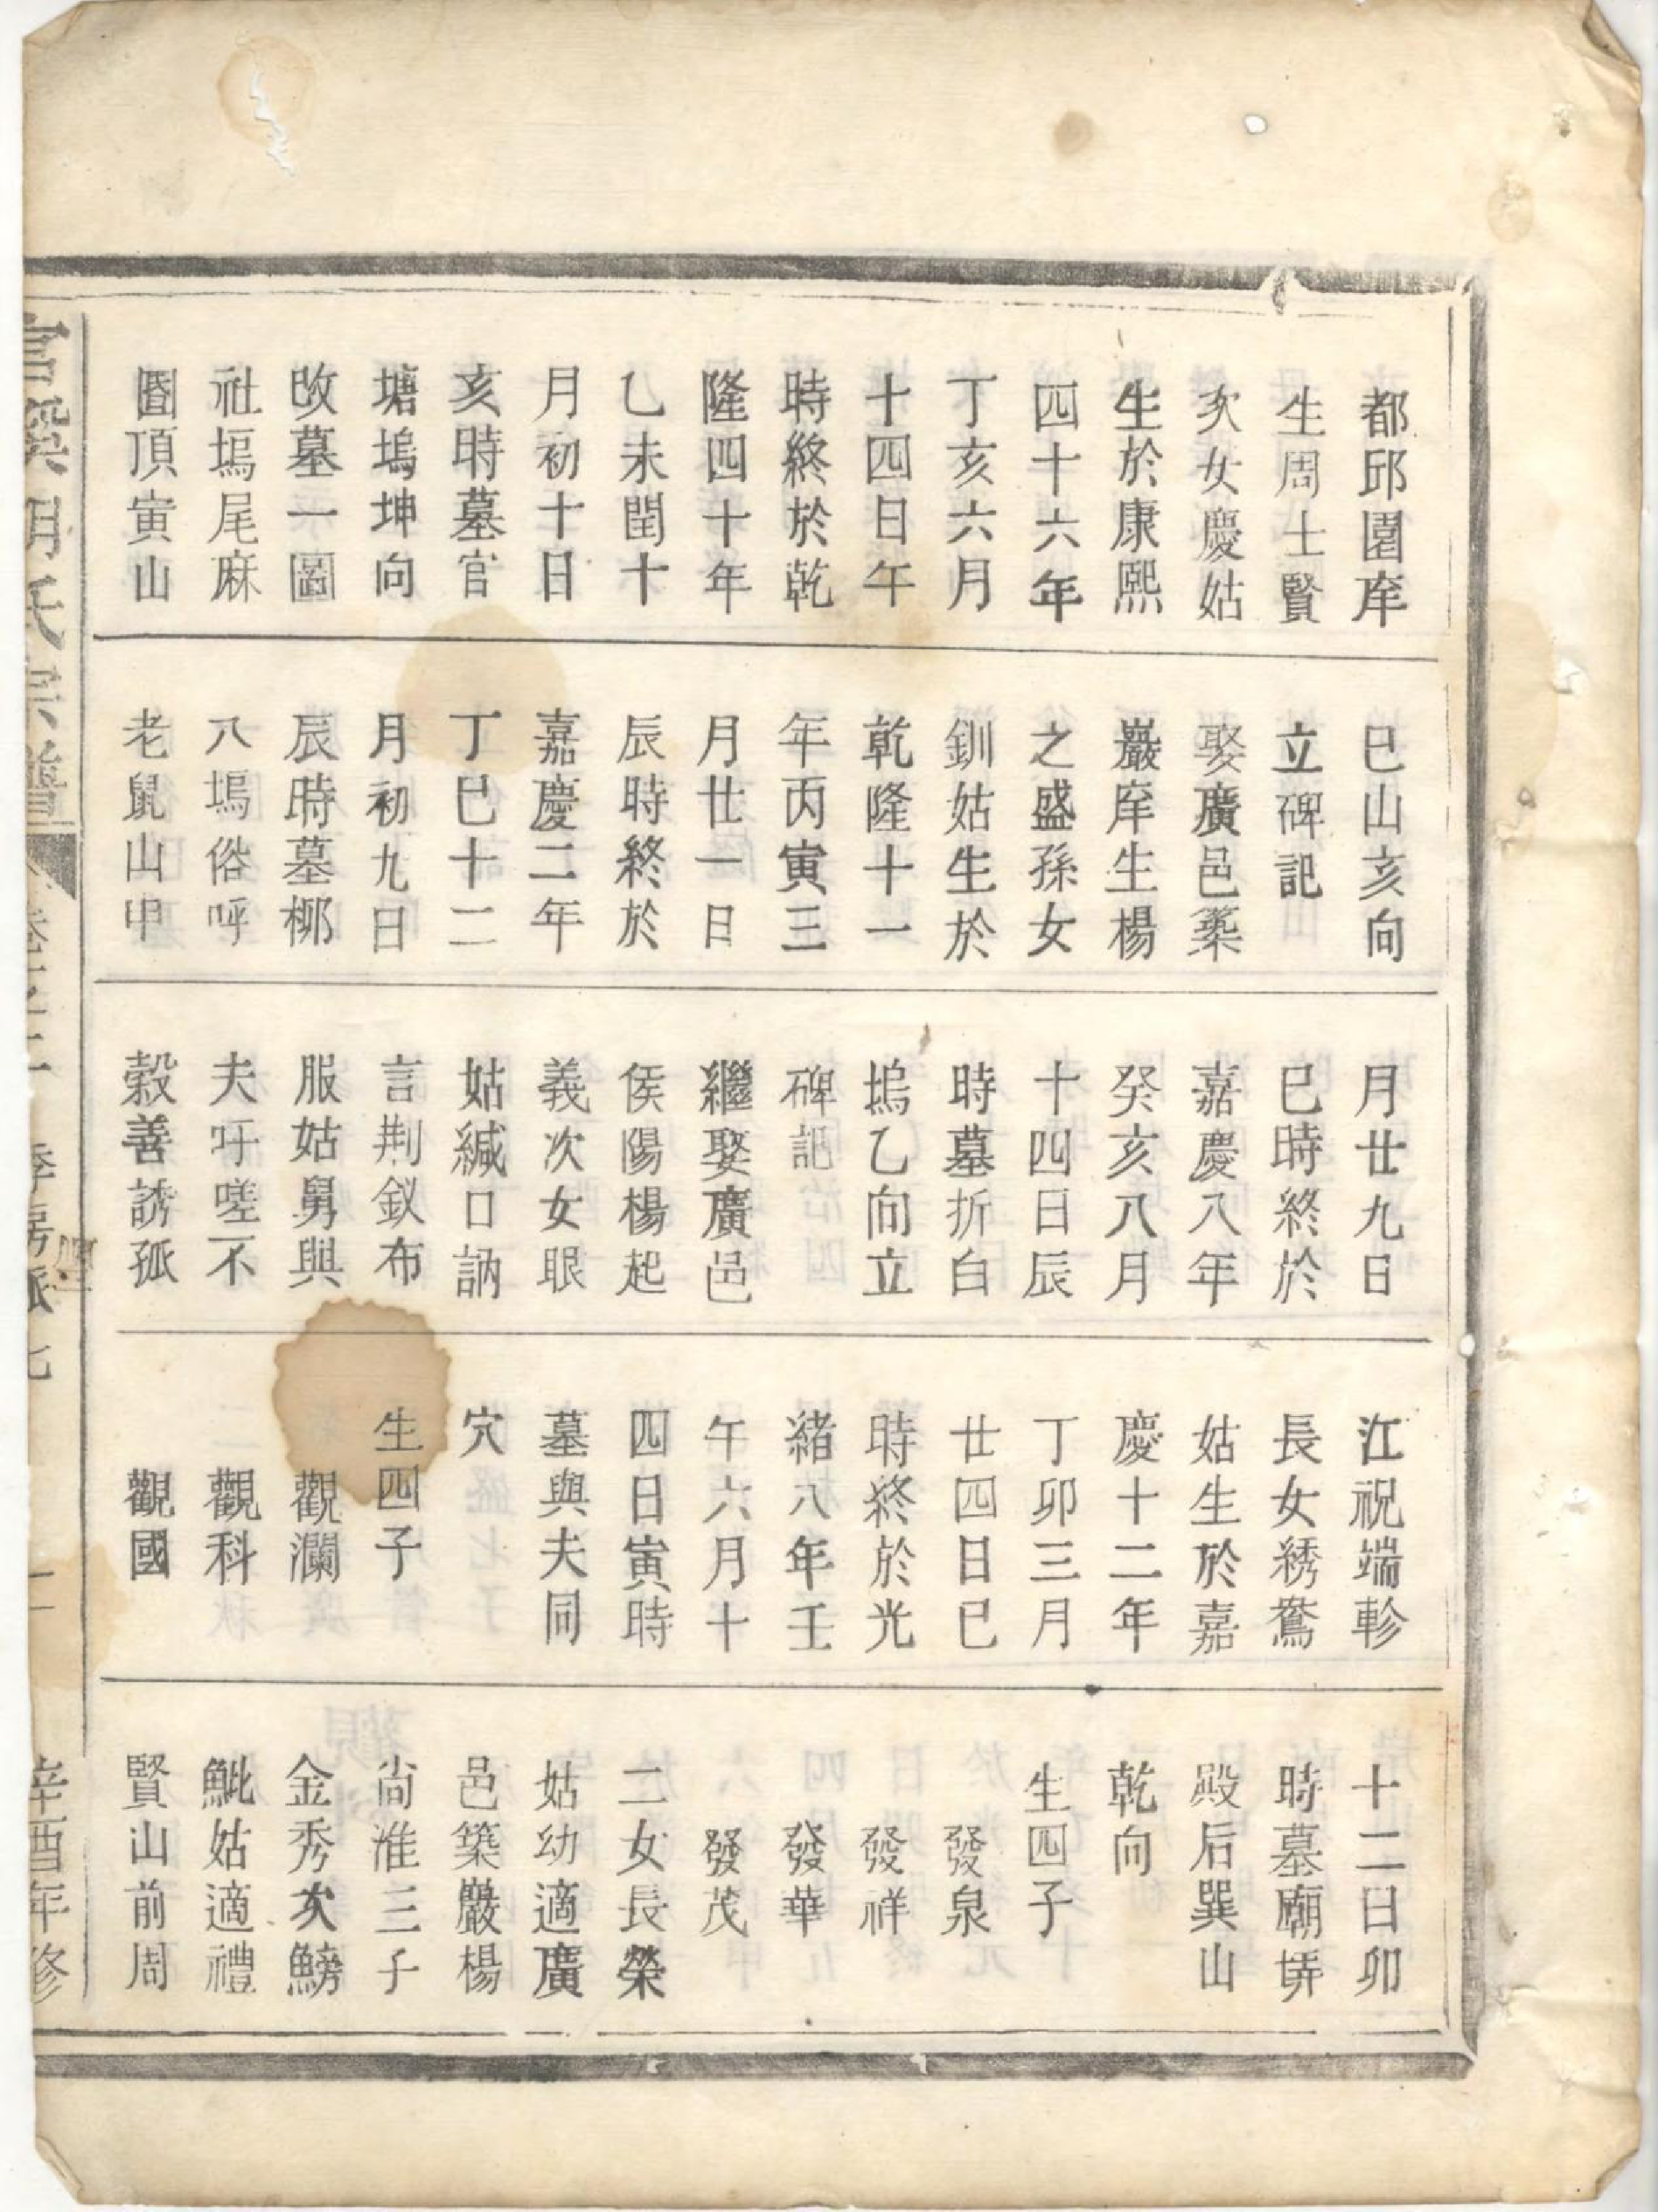 都邱園庠
生周士賢
次女慶姑
生於康熙
四十六年
丁亥六月
十四日午
時終於乾
隆四十年
乙未閏十
月初十日
亥時墓官
塘塢坤向
改墓一圖
社塢尾麻
園頂寅山
巳山亥向
立碑記
娶廣邑築
巖庠生楊
之盛孫女
釧姑生於
乾隆十一
年丙寅三
月廿一日
辰時終於
嘉慶二年
丁巳十二
月初九日
辰時墓柳
八塢俗呼
老鼠山申
月廿九日
巳時終於
嘉慶八年
癸亥八月
十四日辰
時墓折白
塢乙向立
碑記
繼娶廣邑
侯陽楊起
義次女眼
姑緘口訥
言荆釵布
服姑舅與
夫吁嗟不
穀善誘孤
江祝端軫
長女綉鴛
姑生於嘉
慶十二年
丁卯三月
廿四日巳
時終於光
緒八年壬
午六月十
四日寅時
墓與夫同
穴
生四子
觀瀾
觀科
觀國
十二日卯
時墓廟塝
殿后巽山
乾向
生四子
發泉
發祥
發華
發茂
二女長榮
姑幼適廣
邑築巖楊
尚淮三子
金秀次鰟
魮姑適禮
賢山前周
氏宗譜
季房派七
辛酉年修